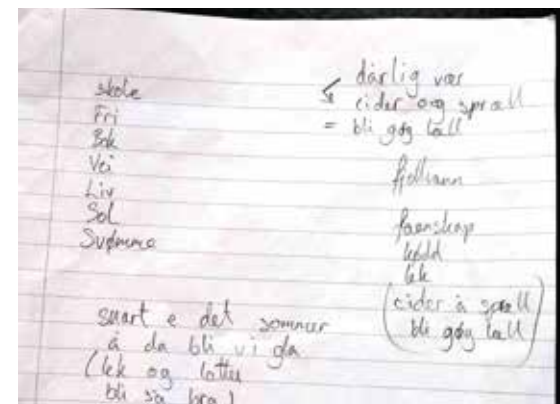 skole
Fri
Bok
Vei
Liv
Sol
Svømme
snart e det sommer
å da bli vi gla
(lek og latter
bli så bra)
dårlig vær
& cider og spræll
= bli gøy læll
fjellvann
faenskap
kald
lek
(cider å spræll
bli gøy læll)